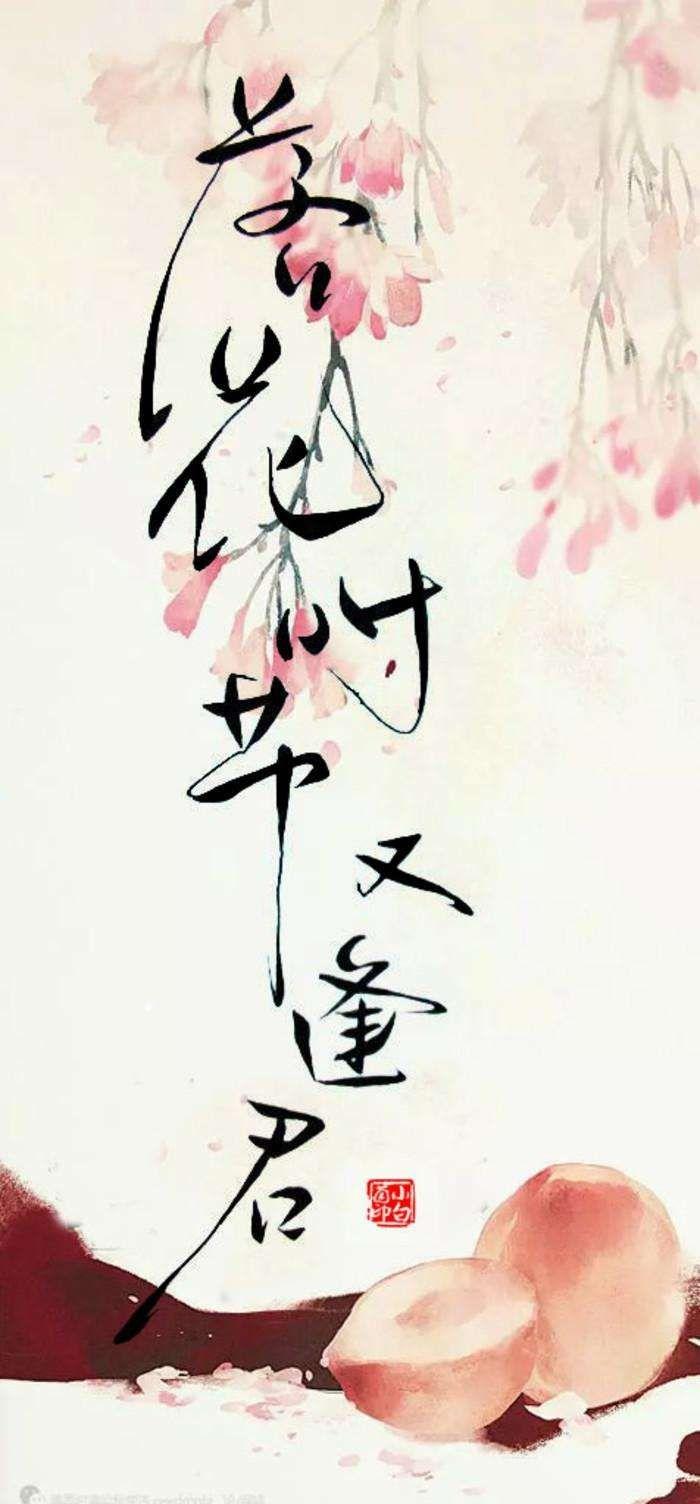 落花时节又逢君
小白